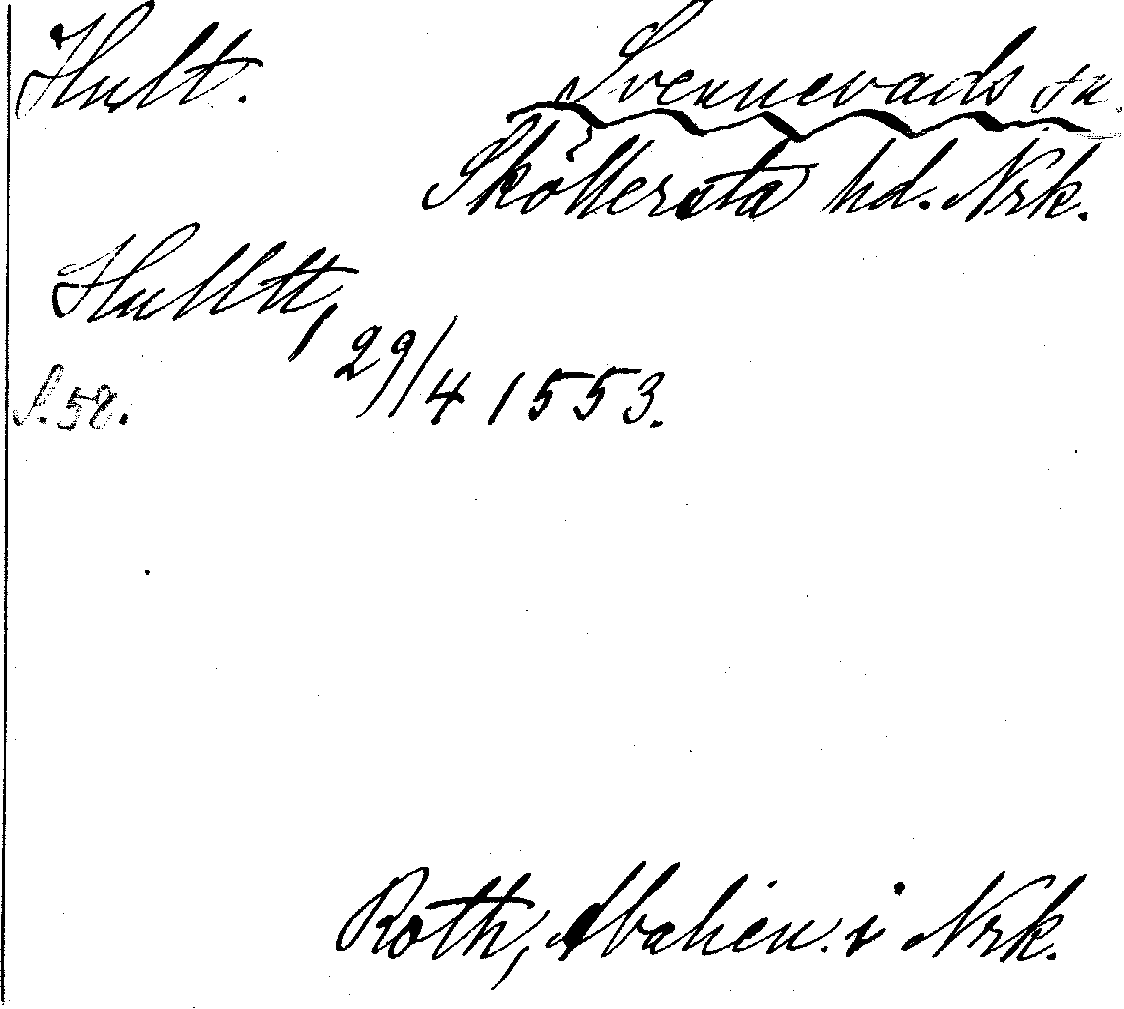 Hult. Svennevads sn.
Sköllersta hd. Nrk.
Hulltt,
29/4 1553.
S. 58.
Roth, Abalien. i Nrk.